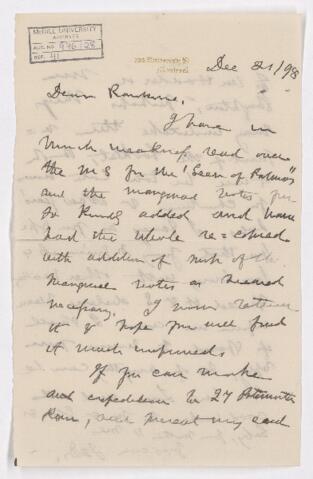 McGILL UNIVERSITY
ARCHIVES
ACC. NO. 976/28
REF. 41
Dec 21/98
Dear
I have in
much read over
the MS for the "
and the marginal notes you
so kindly added and have
had the whole re=copied
with addition of such of the
marginal notes as seemed
necessary. I now return
it & hope you will find
it much improved.
If you can make
an expedition to 27
Row, and present my card